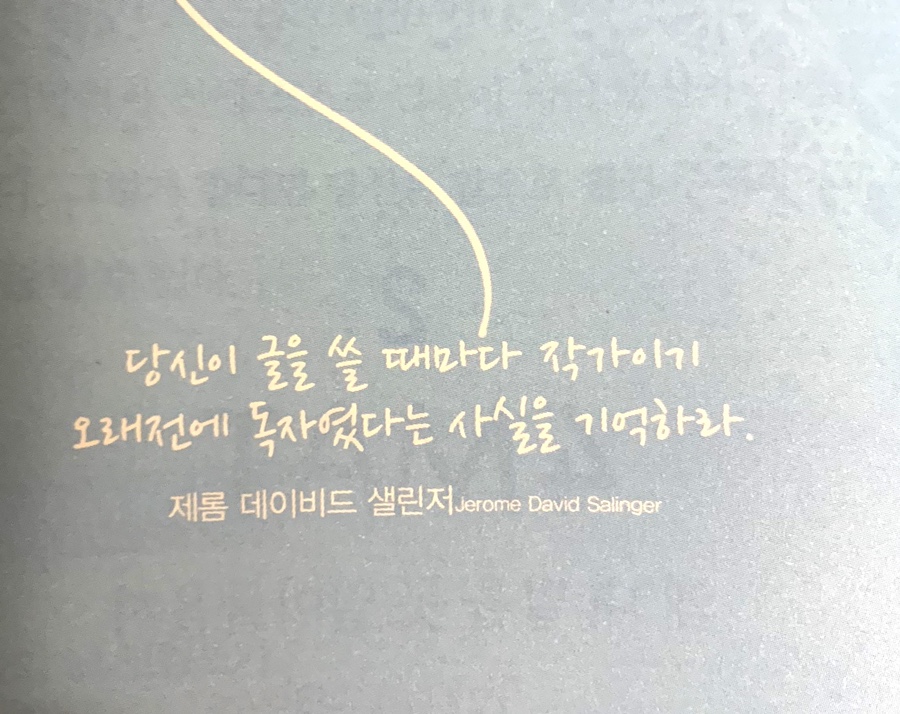 당신이 글을 쓸 때마다 작가이기
오래전에 독자였다는 사실을 기억하라.
제롬 데이비드 샐린저Jerome David Salinger